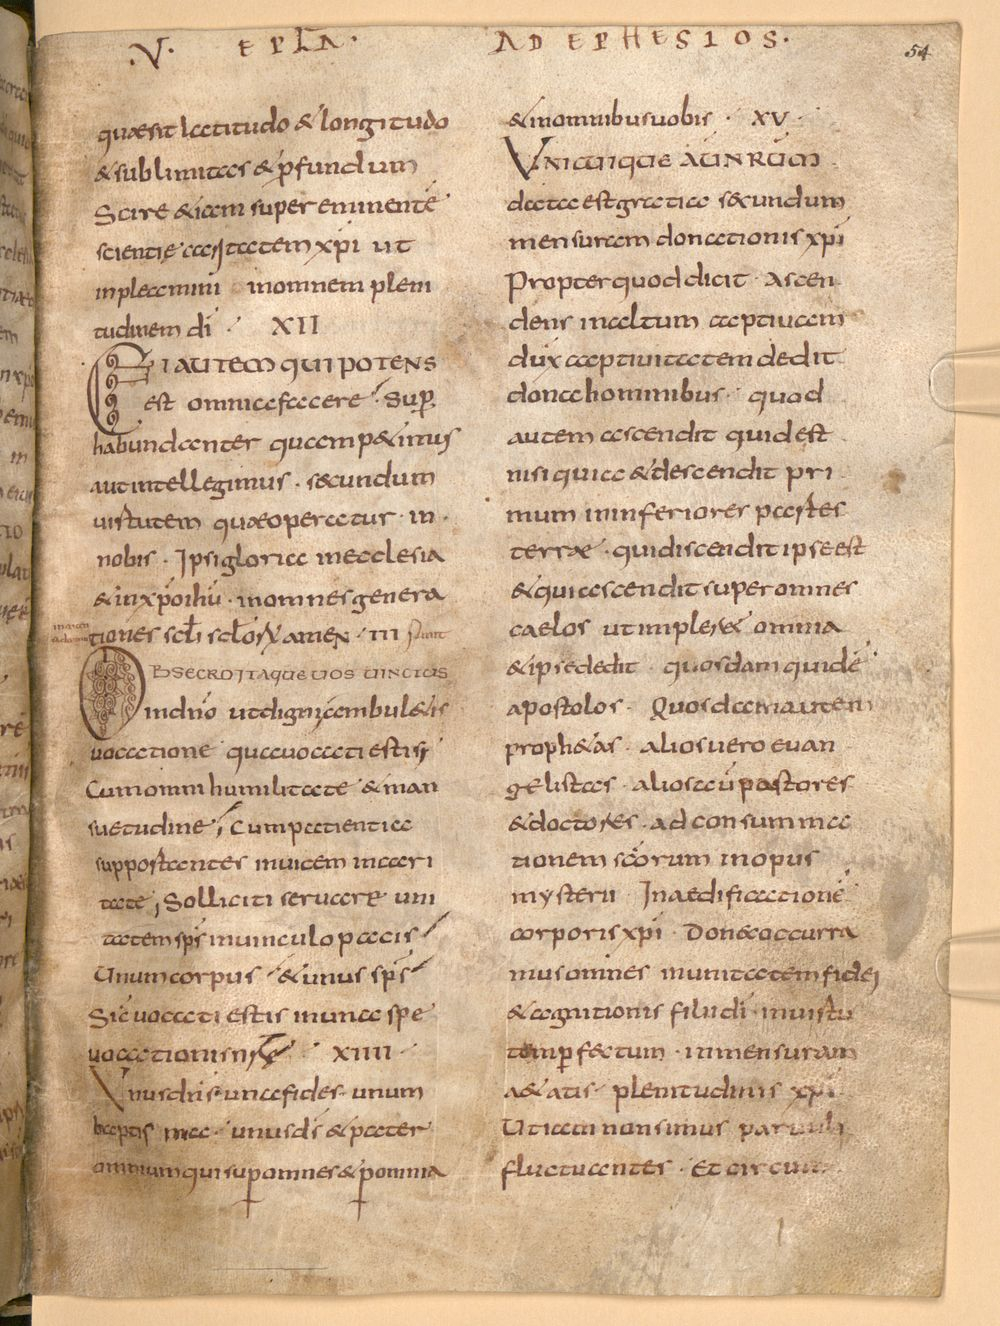 ·V· EPLA· AD EPHESIOS· 54
quae sit latitudo & longitudo
& sublimitas & pfundum
Scire & iam super eminentē
scientie caritatem xpi ut
inpleamini in omnem pleni
tudinem di · XII
Ei AUTEM QUI POTENS
est omnia facere Sup
habundanter quam p&imus
aut intellegimus · secundum
virtutem quae operatur · in ·
nobis · Ipsi gloria in ecclesia
& in xpo ihu · in omnes genera
tiones scli sclorum AMEN · III
OBSECRO ITAQUE VOS VINCTUS
in dno ut digne ambul&is
vocatione qua vocati estis
Cum omni humilitate & man
suetudine Cum patientia
supportantes invicem in cari
tate Solliciti servare uni
tatem sps in vinculo pacis
Unum corpus & unus sps
Sic vocati estis in una spe
vocationis XIIII ·
Unus dns · una fides · unum
baptisma · unus ds & pater
omnium qui sup omnes & p omnia
& in omnibus vobis · XV ·
UNICUIQUE AU NRUM
data est gratia secundum
mensuram donationis xpi
Propter quod dicit · Ascen
dens in altum captivam
dux captivitatem dedit
dona hominibus · quod
autem ascendit quid est
nisi quia & descendit pri
mum in inferiores partes
terrae · qui discendit ipse est
& qui ascendit super omnes
caelos ut impler& omnia
& ipse dedit quosdam quidē
apostolos · Quosdam autem
proph&as · alios vero evan
gelistas · alios au pastores
& doctores · ad consumma
tionem scorum in opus
mysterii In aedificationē
corporis xpi · Donec occurra
mus omnes in unitatem fidei
& agnitionis filii di in virtu
tem pfectum · in mensuram
a&atis plenitudinis xpi
Ut iam non simus parvuli
fluctuantes · Et circum